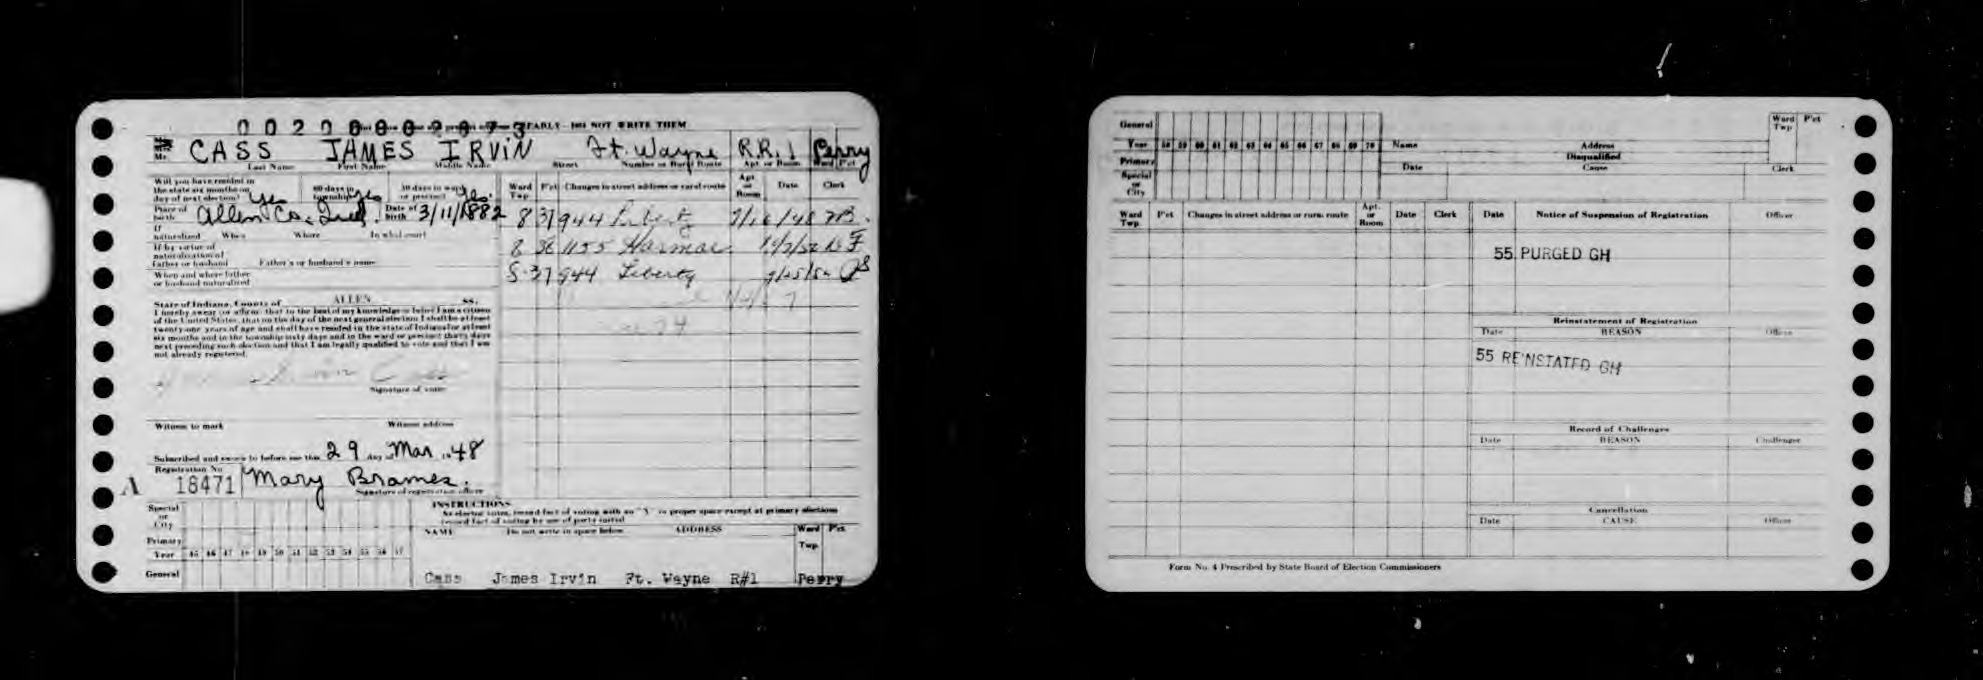 0020000020 7 3 EARLY - DO NOT WRITE THEM
Mr. CASS JAMES IRVIN Ft. Wayne R.R. 1 Perry
Last Name First Name Middle Name Street Number or Rural Route Apt. or Room Ward Pct
Will you have resided in the state six months on day of next election? Yes 60 days in township? Yes 30 days in ward or precinct Yes.
Place of birth Allen Co., Ind. Date of birth 3/11/1882
If naturalized When Where In what court
If by virtue of naturalization of father or husband Father's or husband's name
When and where father or husband naturalized
State of Indiana, County of ALLEN ss.
I hereby swear (or affirm) that to the best of my knowledge or belief I am a citizen
of the United States, that on the day of the next general election I shall be at least
twenty-one years of age and shall have resided in the state of Indiana for at least
six months and in the township sixty days and in the ward or precinct thirty days
next preceding such election and that I am legally qualified to vote and that I am
not already registered.
Irvin Cass
Signature of voter
Witness to mark Witness address
Subscribed and sworn to before me this 29 day of Mar 1948
Registration No.
A 18471 Mary Brames.
Signature of registration officer
Ward Twp Pct Changes in street address or rural route Apt or Room Date Clerk
8 37 944 Liberty 7/16/48 MB.
8 36 1155 Harmar
8-37 944 Liberty
INSTRUCTIONS
As elector votes, record fact of voting with an "X" in proper space except at primary elections
record fact of voting by use of party initial
Special or City
Primary
Year 45 46 47 48 49 50 51 52 53 54 55 56 57
General
NAME Do not write in space below ADDRESS Ward Twp. Pct.
Cass James Irvin Ft. Wayne R#1 Perry
General
Year 58 59 60 61 62 63 64 65 66 67 68 69 70 Name Address
Primary
Special or City
Disqualified
Date Cause Clerk
Ward Twp P'ct
Ward Twp. P'ct Changes in street address or rural route Apt. or Room Date Clerk Date Notice of Suspension of Registration Officer
55 PURGED GH
Reinstatement of Registration
Date REASON Officer
55 REINSTATED GH
Record of Challenges
Date REASON Challenger
Cancellation
Date CAUSE Officer
Form No. 4 Prescribed by State Board of Election Commissioners